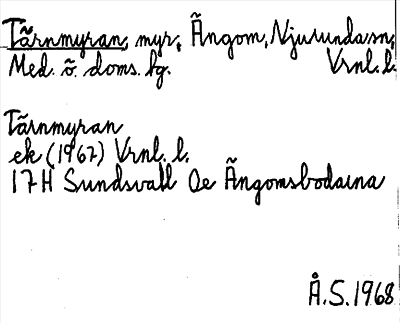 Tärnmyran, myr, Ängom, Njurunda sn,
Med. ö. doms. hg. Vrnl. l.
Tärnmyran
ek (1967) Vrnl. l.
17H Sundsvall 0e Ängomsbodarna
Å.S. 1968